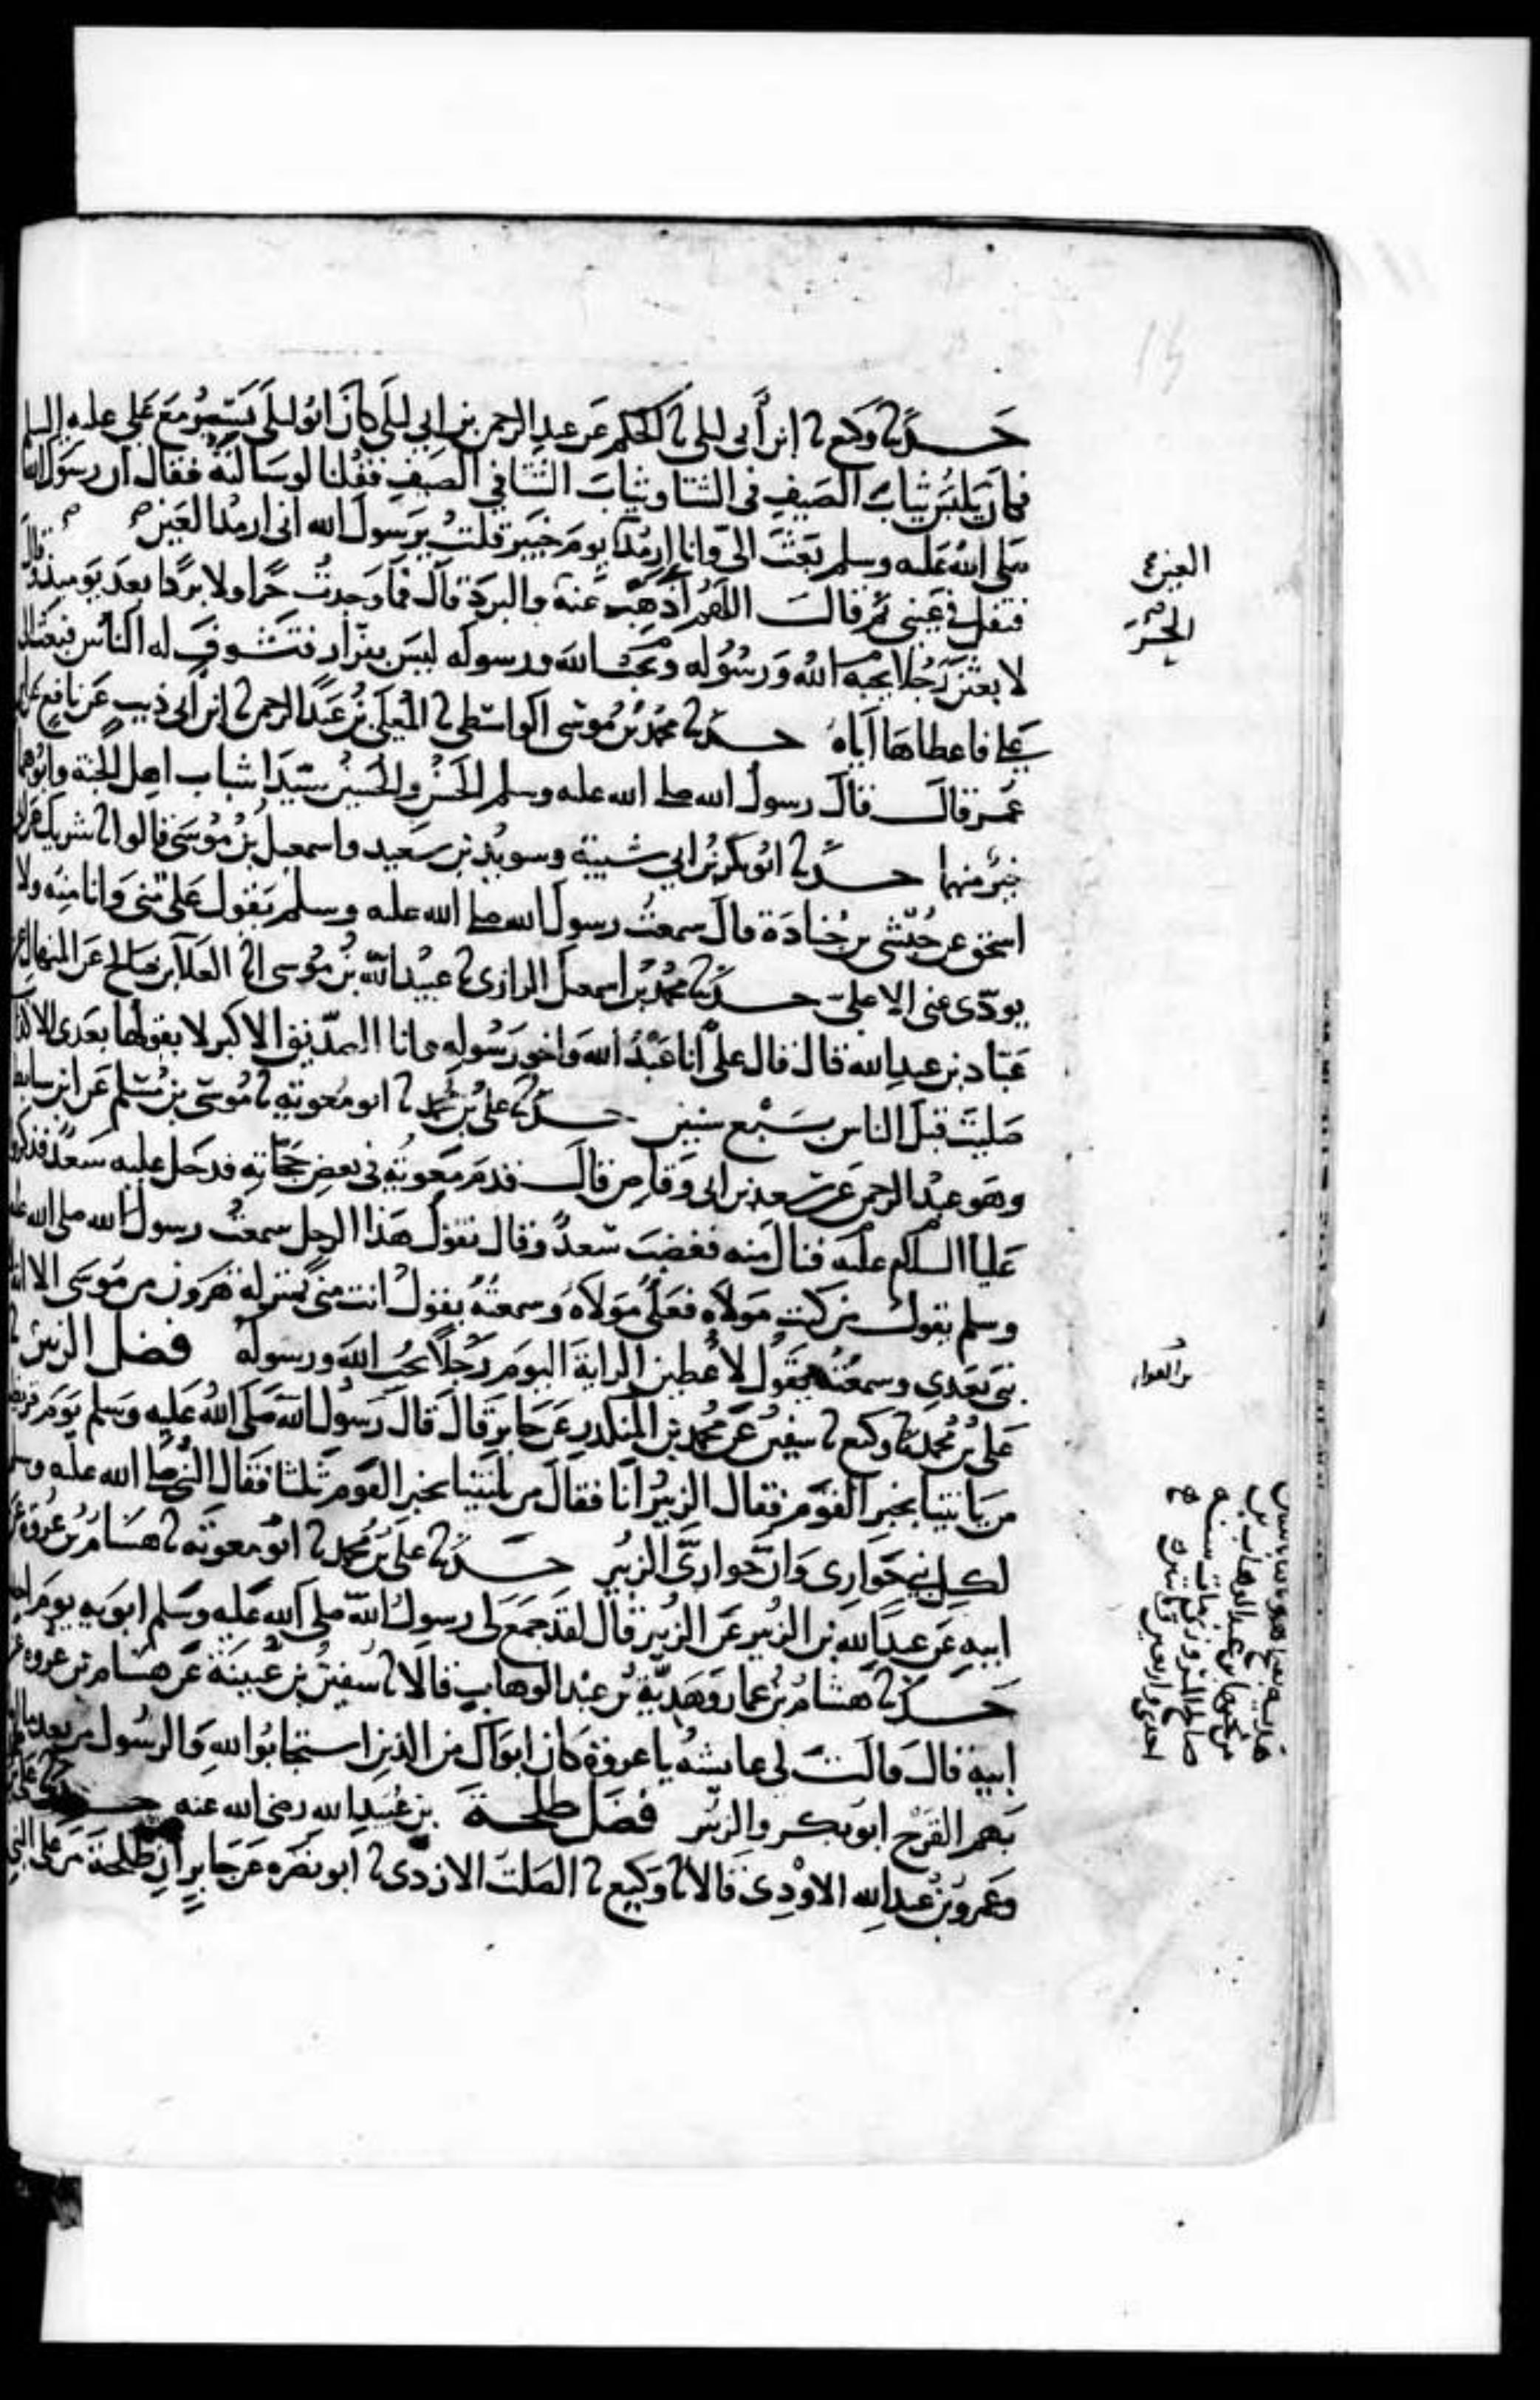 حدثنا وكيع ثنا ابن أبي ليلى ثنا الحكم عن عبد الرحمن بن ابي ليلى كان ابو ليلى يسمر مع علي عليه السلم
فكان يلبس ثياب الصيف في الشتا وثياب الشتا في الصيف فقلنا لو سالته فقال ان رسول الله
صلى الله عليه وسلم بعث الي وانا ارمد يوم خيبر قلت يرسول الله اني ارمد العين
فتفل في عيني ثم قال اللهم أذهب عنه والبرد قال فما وجدت حرا ولا بردا بعد يوميذ وقال
لا بعثن رجلا يحبه الله ورسوله ويحب الله ورسوله ليس بفرار فتشوف له الناس فبعث الى
علي فاعطاها اياه حدثنا محمد بن موسى الواسطي ثنا المعلى بن عبد الرحمن ثنا ابن أبي ذيب عن نافع عن ابن
عمر قال قال رسول الله صلى الله عليه وسلم الحسن والحسين سيدا شباب اهل الجنة وابوهما
خير منهما حدثنا ابو بكر بن ابي شيبة وسويد بن سعيد واسمعيل بن موسى قالوا ثنا شريك عن ابي
اسحق عن حبشي بن جنادة قال سمعت رسول الله صلى الله عليه وسلم يقول علي مني وانا منه ولا
يودي عني الا علي حدثنا محمد بن اسمعيل الرازي ثنا عبيد الله بن موسى انا العلا بن صالح عن المنهال عن
عباد بن عبد الله قال قال علي انا عبد الله واخو رسوله وانا الصديق الاكبر لا يقولها بعدي الا كذاب
صليت قبل الناس بسبع سنين حدثنا علي بن محمد ثنا ابو معوية ثنا موسى بن مسلم عن ابن سابط
وهو عبد الرحمن عن سعد بن ابي وقاص قال قدم معوية في بعض حجاته فدخل عليه سعد فذكروا
عليا السلام عليه فنال منه فغضب سعد وقال تقول هذا الرجل سمعت رسول الله صلى الله عليه
وسلم يقول من كنت مولاه فعلي مولاه وسمعته يقول انت مني بمنزلة هرون من موسى الا انه لا
نبي بعدي وسمعته يقول لاعطين الراية اليوم رجلا يحب الله ورسوله فضل الزبير ثنا
علي بن محمد ثنا وكيع ثنا سفين عن محمد بن المنكدر عن جابر قال قال رسول الله صلى الله عليه وسلم يوم قريظة
من ياتينا بخبر القوم فقال الزبير انا فقال من ياتينا بخبر القوم ثلثا فقال النبي صلى الله عليه وسلم
لكل نبي حواري وان حواري الزبير حدثنا علي بن محمد ثنا ابو معوية ثنا هشام بن عروة عن
ابيه عن عبد الله بن الزبير عن الزبير قال لقد جمع لي رسول الله صلى الله عليه وسلم ابويه يوم احد
حدثنا هشام بن عمار وهدية بن عبد الوهاب قالا ثنا سفين بن عيينة عن هشام بن عروة عن
ابيه قال قالت لي عايشة يا عروة كان ابواك من الذين استجابوا لله والرسول من بعد ما
بهم القرح ابو بكر والزبير فضل طلحة بن عبيد الله رضي الله عنه حدثنا علي
وعمرو بن عبد الله الاودي قالا ثنا وكيع ثنا الصلت الازدي ثنا ابو نضرة عن جابر ان طلحة مر على النبي
العين
الحر